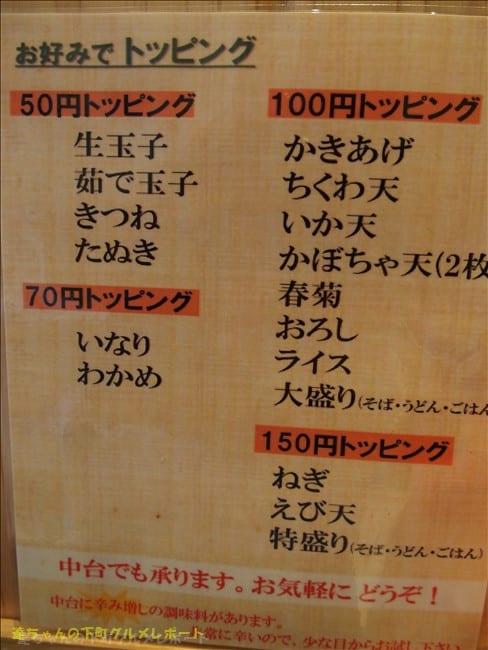 お好みで トッピング
50円トッピング
生玉子
茹で玉子
きつね
たぬき
70円トッピング
いなり
わかめ
100円トッピング
かきあげ
ちくわ天
いか天
かぼちゃ天(2枚
春菊
おろし
ライス
大盛り(そば・うどん・ごはん
150円トッピング
ねぎ
えび天
特盛り(そば・うどん・ごはん)
中台でも承ります。お気軽に どうぞ!
中台に辛み増しの調味料があります。
常に辛いので、少な目からお試し下さい
篷ちゃんの下町グルメレポート